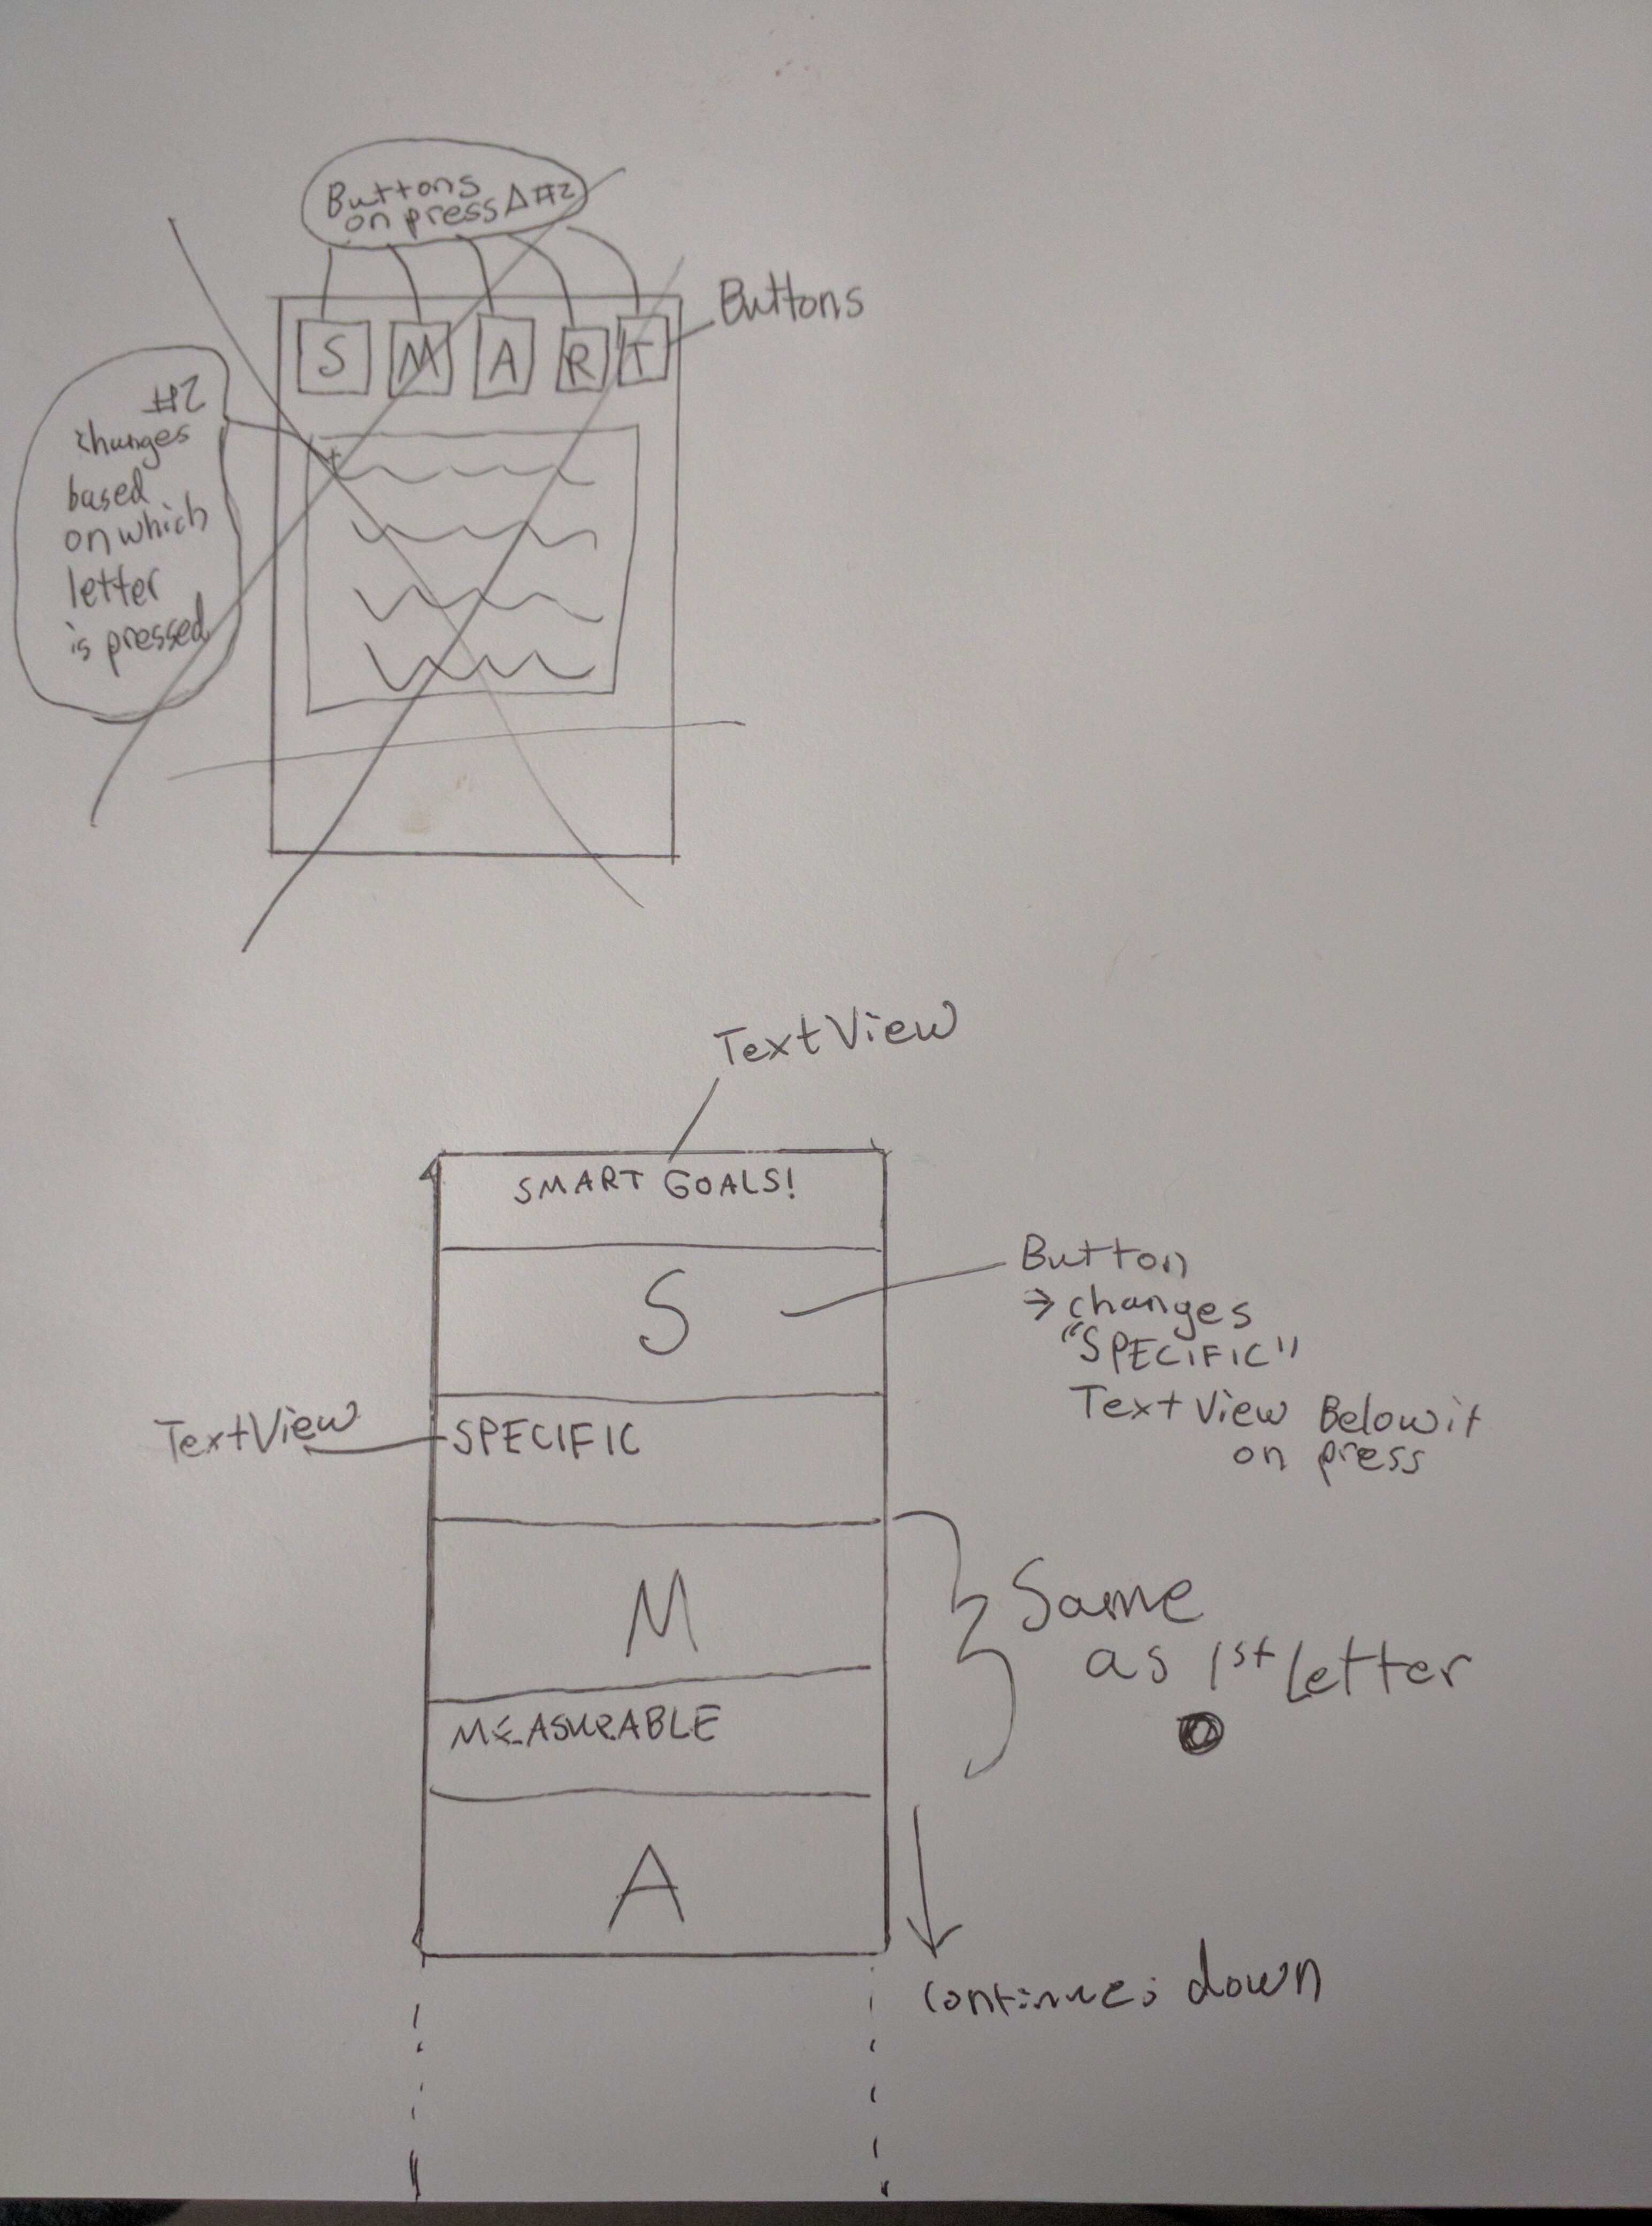 Buttons
on press Δ #2
Buttons
S M A R T
#2
changes
based
on which
letter
is pressed
TextView
SMART GOALS!
S
Button
→ changes
"SPECIFIC"
TextView Below it
on press
TextView
SPECIFIC
M
Same
as 1st Letter
MEASURABLE
A
continues down